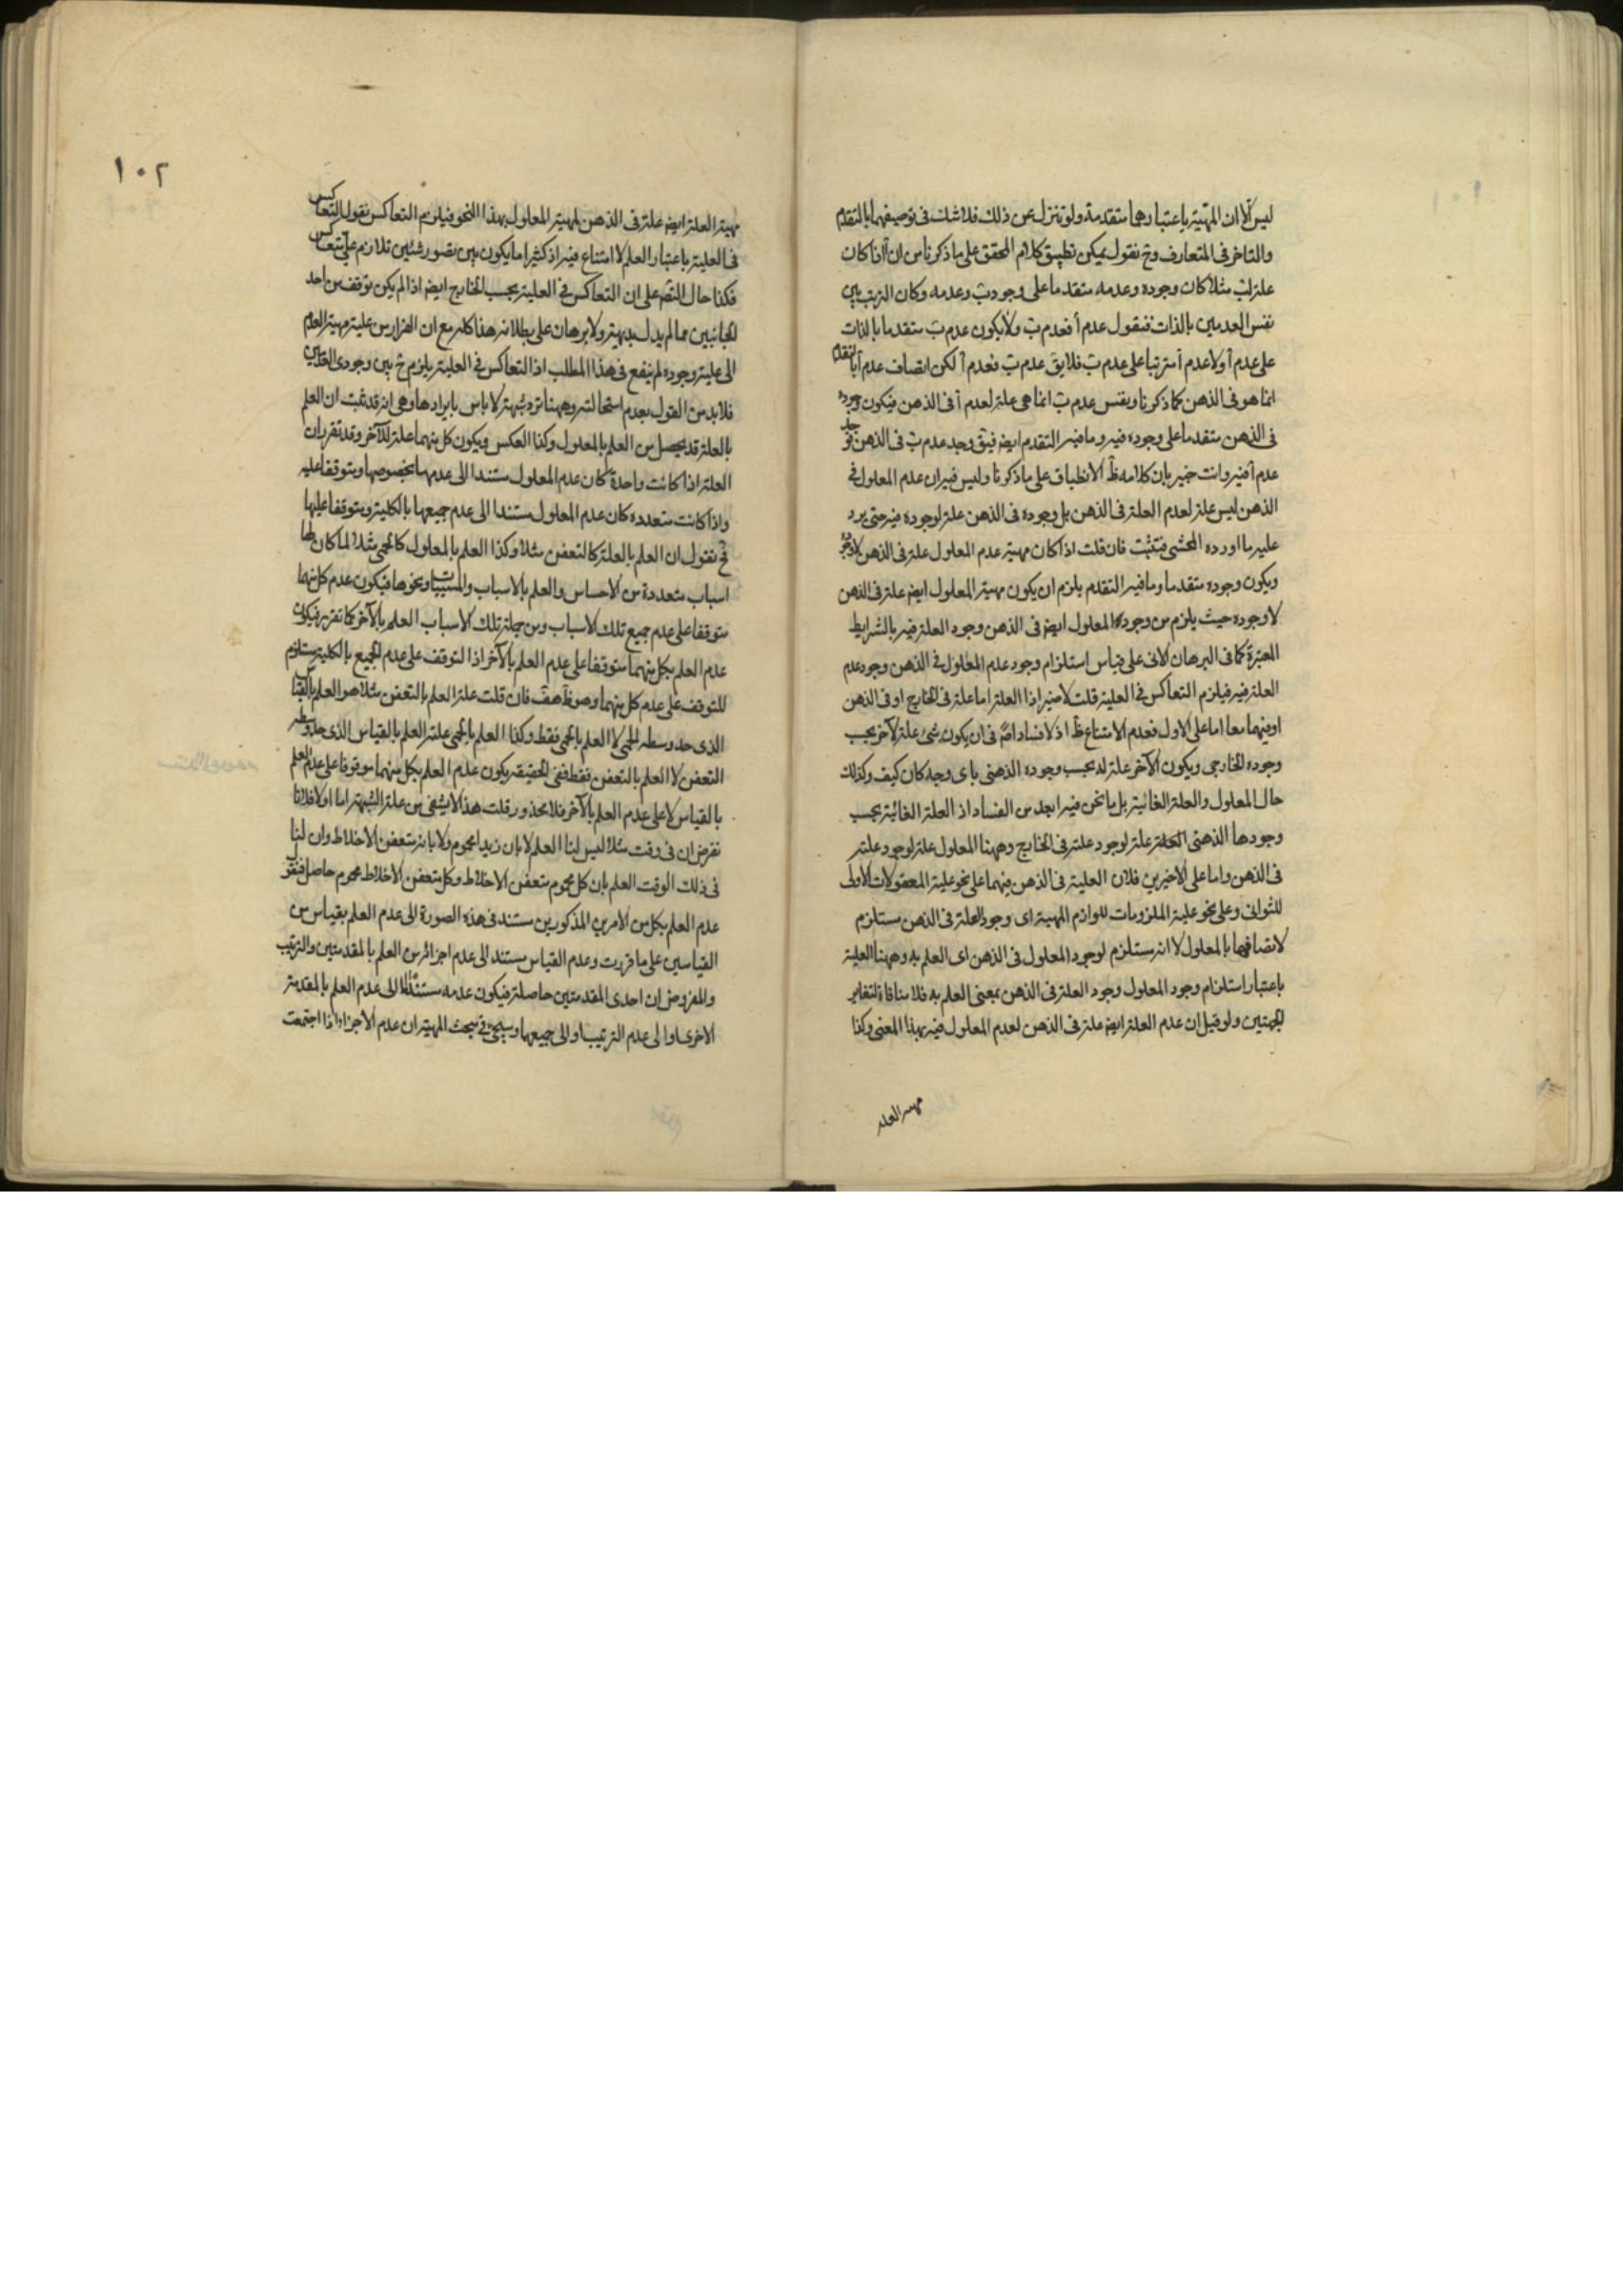 ليس الا ان المهية باعتبارهما متقدمة ولو تنزل عن ذلك فلا شك فى توصيفهما بالتقدم
والتاخر فى المتعارف وح نقول يمكن تطبيق كلام المحقق على ما ذكرنا من ان آ اذا كان
علة لب مثلا كان وجوده وعدمه متقدما على وجود ب وعدمه وكان الترتب بين
نفس العدمين بالذات فنقول عدم آ فعدم ب ولا يكون عدم ب متقدما بالذات
على عدم آ ولا عدم آ مترتبا على عدم ب فلا يق عدم ب فعدم آ لكن اتصاف عدم آ بالتقدم
انما هو فى الذهن كما ذكرنا ونفس عدم ب انما هى علة لعدم آ فى الذهن فيكون وجوده
فى الذهن متقدما على وجوده فيه وما فيه التقدم ايض فيق وجد عدم ب فى الذهن فوجد
عدم آ فيه وانت خبير بان كلامه ظ الانطباق على ما ذكرنا وليس فيه ان عدم المعلول فى
الذهن ليس علة لعدم العلة فى الذهن بل وجوده فى الذهن علة لوجوده فيه حتى يرد
عليه ما اورده المحشى فتثبت فان قلت اذا كان مهية عدم المعلول علة فى الذهن لا وجوده
ويكون وجوده متقدما وما فيه التقدم يلزم ان يكون مهية المعلول ايض علة فى الذهن
لا وجوده حيث يلزم من وجود المعلول ايض فى الذهن وجود العلة فيه بالشرايط
المعتبرة كما فى البرهان الانى على قياس استلزام وجود عدم المعلول فى الذهن وجود عدم
العلة فيه فيلزم التعاكس فى العلية قلت لا ضير اذا العلة اما علة فى الخارج او فى الذهن
او فيهما معا اما على الاول فعدم الامتناع ظ اذ لا فساد اصلا فى ان يكون شئ علة لآخر بحسب
وجوده الخارجى ويكون الآخر علة له بحسب وجوده الذهنى باى وجه كان كيف وكذلك
حال المعلول والعلة الغائية بل ما نحن فيه ابعد من الفساد اذ العلة الغائية بحسب
وجودها الذهنى علة لوجود علة فى الخارج وههنا المعلول علة لوجود علته
فى الذهن واما على الاخيرين فلان العلية فى الذهن فيهما على نحو علية المعقولات الاولى
للثوانى وعلى نحو علية الملزومات للوازم المهية اى وجود العلة فى الذهن مستلزم
لاتصافها بالمعلول لا انه مستلزم لوجود المعلول فى الذهن اى العلم به وههنا العلية
باعتبار استلزام وجود المعلول وجود العلة فى الذهن بمعنى العلم به فلا منافاة لتغاير
الجهتين ولو قيل ان عدم العلة ايض علة فى الذهن لعدم المعلول فيه بهذا المعنى وكذا
مهية العلة
١٠٢
مهية العلة ايض علة فى الذهن لمهية المعلول بهذا النحو فيلزم التعاكس نقول التعاكس
فى العلية باعتبار العلم لا امتناع فيه اذ كثيرا ما يكون بين تصور شيئين تلازم على التعاكس
فكذا حال التصديق على ان التعاكس فى العلية بحسب الخارج ايض اذا لم يكن توقف من احد
الجانبين مما لم يدل بديهة ولا برهان على بطلانه هذا كله مع ان الفرار من علية مهية العدم
الى علية وجوده لم ينفع فى هذا المطلب اذ التعاكس فى العلية يلزم ح بين وجودى العدمين
فلا بد من القول بعدم استحالته وههنا ترد شبهة لا باس بايرادها وهى انه قد ثبت ان العلم
بالعلة قد يحصل من العلم بالمعلول وكذا العكس ويكون كل منهما علة للآخر وقد تقرر ان
العلة اذا كانت واحدة كان عدم المعلول مستندا الى عدمها بخصوصها ومتوقفا عليه
واذا كانت متعدده كان عدم المعلول مستندا الى عدم جميعها بالكلية ومتوقفا عليها
فح نقول ان العلم بالعلة كالتعفن مثلا وكذا العلم بالمعلول كالحمى مثلا لما كان لها
اسباب متعددة من الاحساس والعلم بالاسباب والمسببات ونحوها فيكون عدم كل منهما
متوقفا على عدم جميع تلك الاسباب ومن جملة تلك الاسباب العلم بالآخر كما تقرر فيكون
عدم العلم بكل منهما متوقفا على عدم العلم بالآخر اذ التوقف على عدم الجميع بالكلية مستلزم
للتوقف على عدم كل منهما وهو ظ هف فان قلت علة العلم بالتعفن مثلا هو العلم بالقياس
الذى حد وسطه الحمى لا العلم بالحمى فقط وكذا العلم بالحمى علته العلم بالقياس الذى حد وسطه
التعفن لا العلم بالتعفن فقط ففى الحقيقه يكون عدم العلم بكل منهما موقوفا على عدم العلم
بالقياس لا على عدم العلم بالآخر فلا محذور قلت هذا لا يشفى من علة الشبهة اما اولا فلانا
نفرض ان فى وقت مثلا ليس لنا العلم لا بان زيدا محموم ولا بانه متعفن الاخلاط وان لنا
فى ذلك الوقت العلم بان كل محموم متعفن الاخلاط وكل متعفن الاخلاط محموم حاصل فنقول
عدم العلم بكل من الامرين المذكورين مستند فى هذه الصورة الى عدم العلم بقياس من
القياسين على ما قررت وعدم القياس مستند الى عدم اجزائه من العلم بالمقدمتين والترتيب
والمفروض ان احدى المقدمتين حاصلة فيكون عدمه مستندا الى عدم العلم بالمقدمة
الاخرى او الى عدم الترتيب او الى جميعها وسيجئ فى مبحث المهية ان عدم الاجزاء اذا اجتمعت